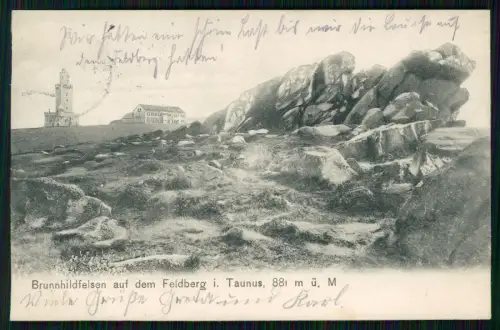 Wir hatten eine schön Last bis wir die Lausche auf
dem Feldberg hatten!
Brunnhildfelsen auf dem Feldberg i. Taunus, 881 m ü. M
Viele Grüße Greta und Karl.